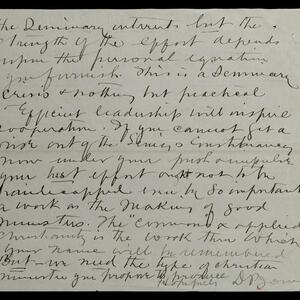 the Seminary interests but the
strength of the effort depends
upon the personal equation
you furnish. This is a Seminary
crisis & nothing but practical
Efficient leadership will inspire
cooperation. If you cannot get a
out of the Constituency
now under your push & impulse
your best effort ought not to be
handicapped even by so important
a work as the making of good
ministers. The "Common & applied
Christianity is the work thro which
your name will be remembered
But we need the type of christian
minister you propose to produce